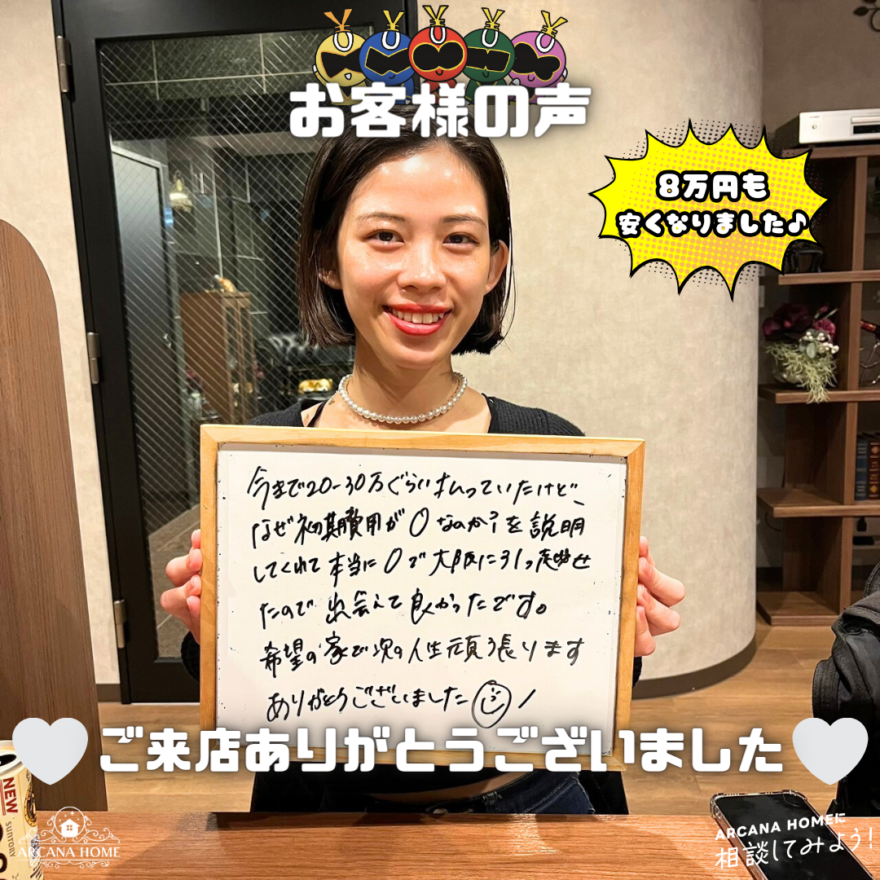 お客様の声
8万円も
安くなりました♪
今まで20-30万ぐらい払っていたけど、
なぜ初期費用が0なのか?を説明
してくれて本当に0で大阪に引っ越せ
たので出会えて良かったです。
希望の家で次の人生頑張ります
ありがとうございました
ご来店ありがとうございました
NEW
SUNTORY
ARCANA HOME
ARCANA HOMEに
相談してみよう!